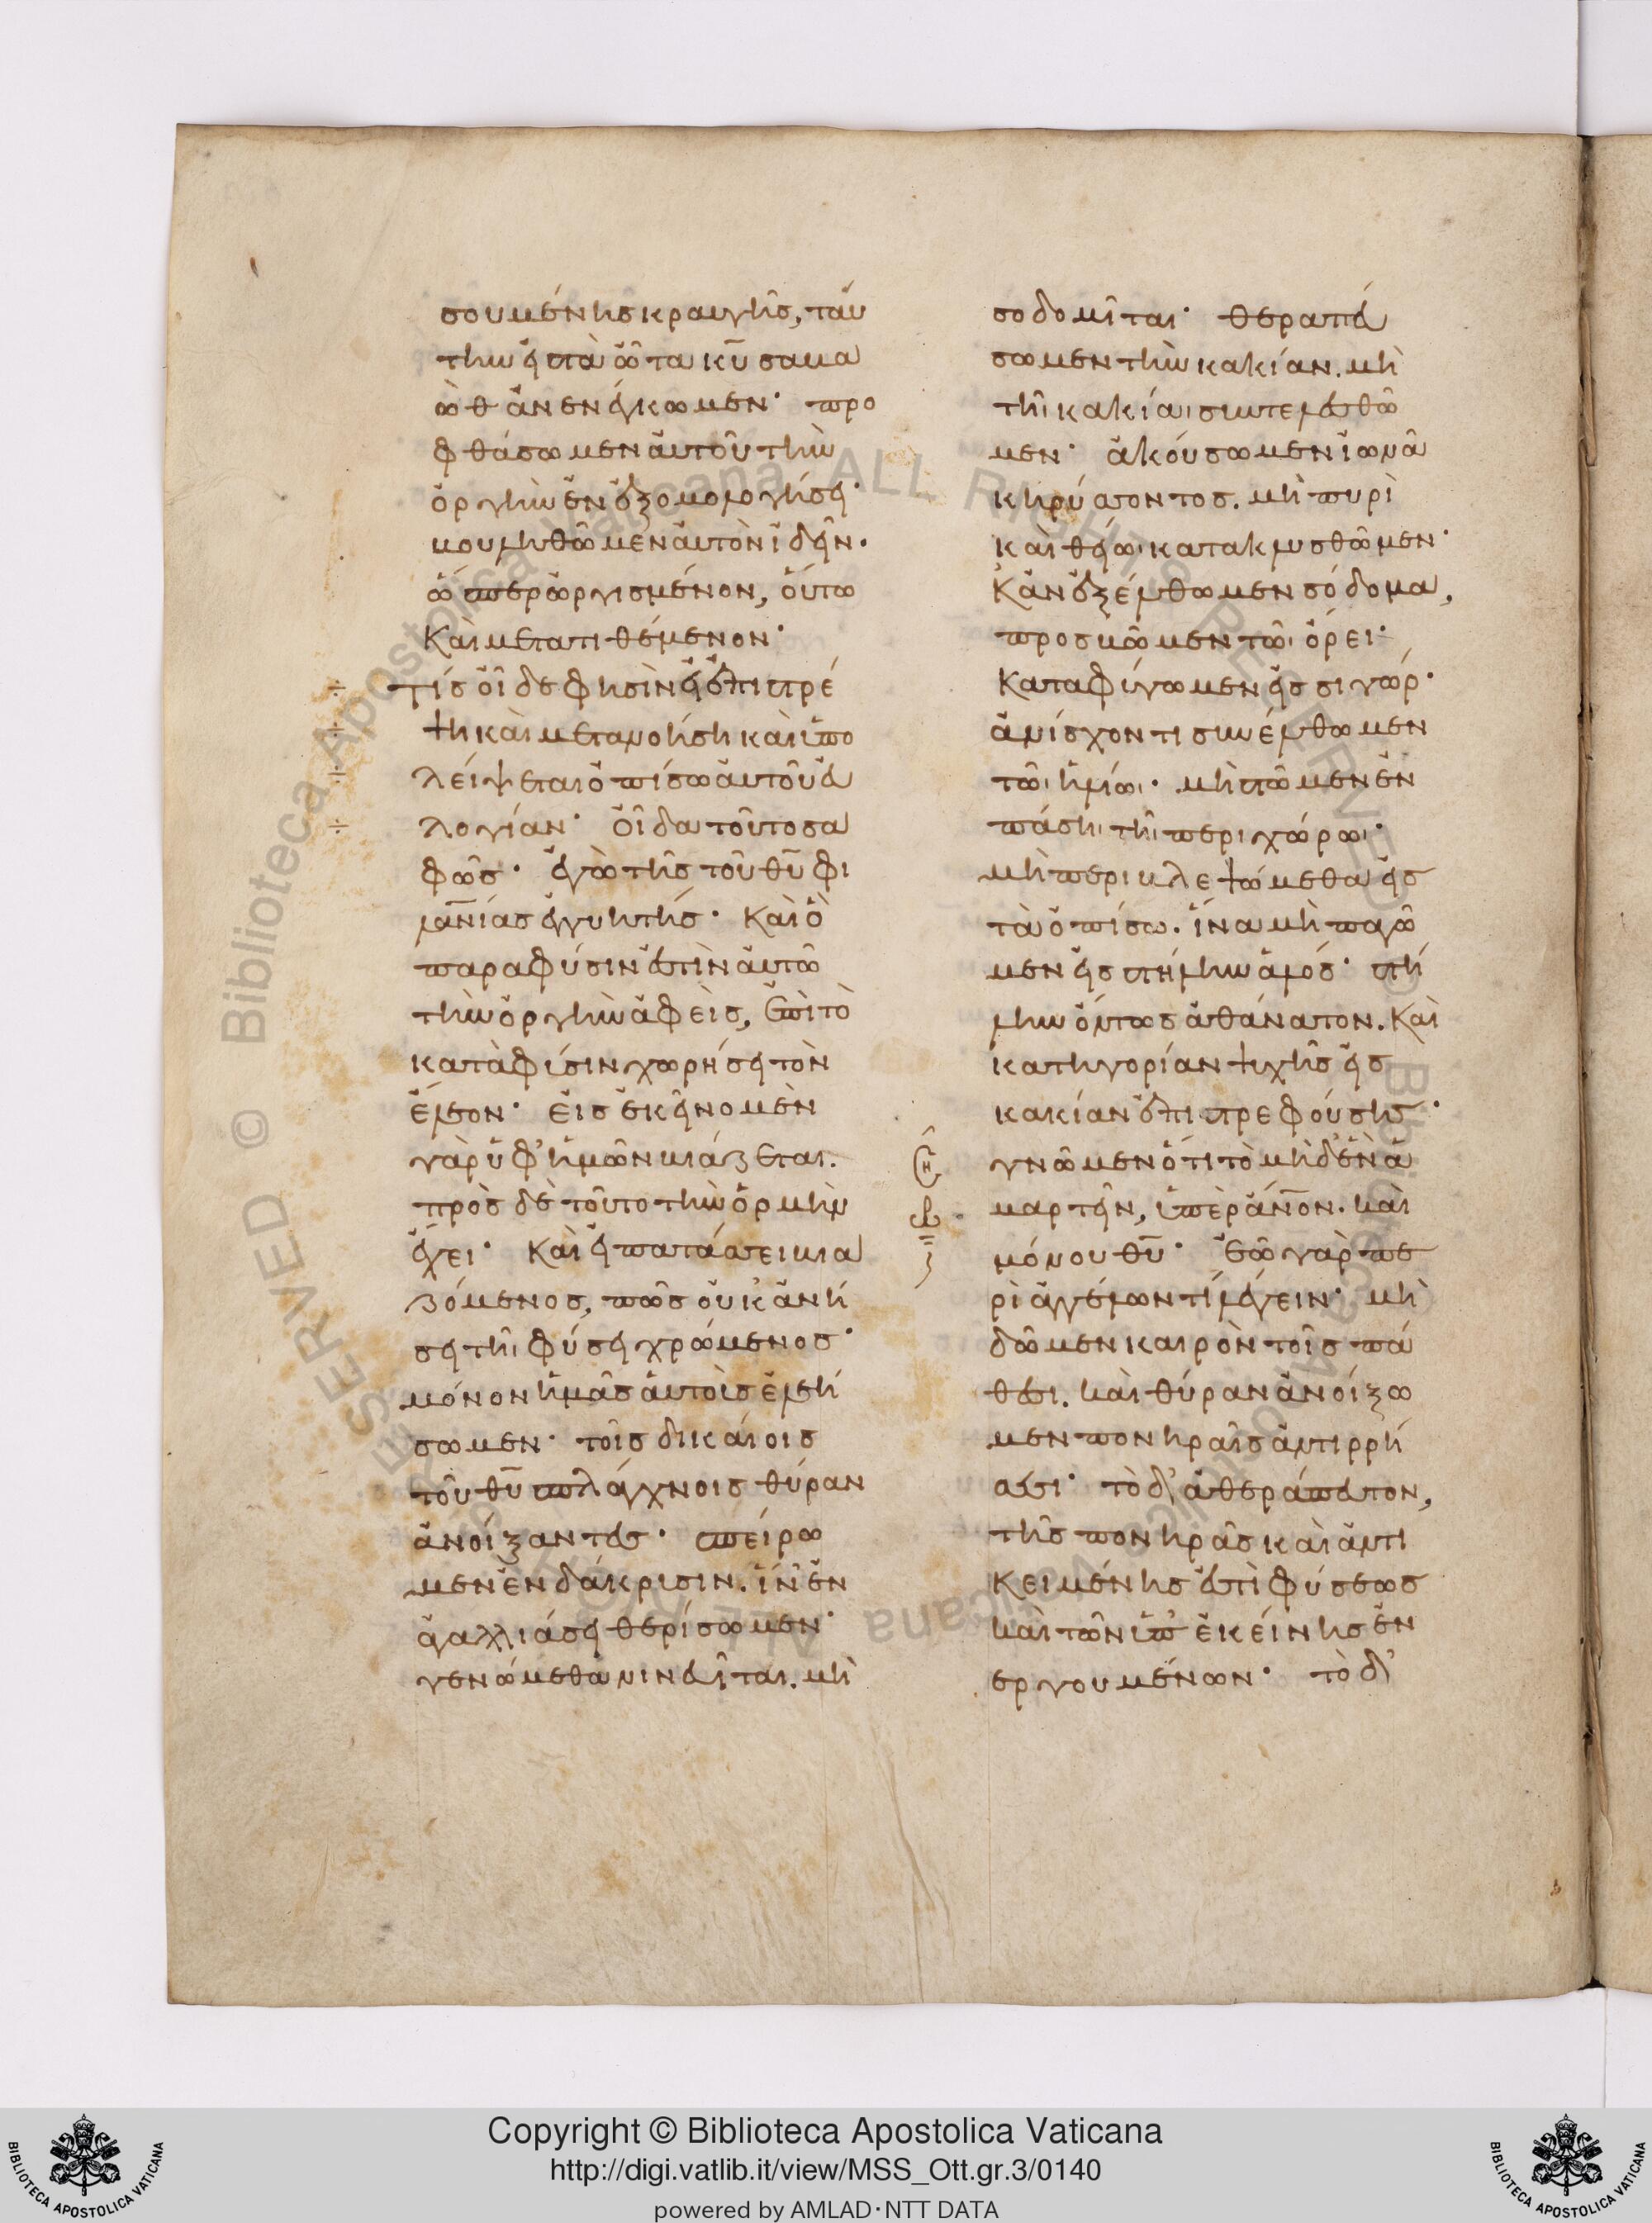 σουμένησ κραυγῆσ, ταύ
την εἰσ τὰ ὦτα κ̅υ̅ σαβα
ὼθ ἀνενέγκωμεν· προ
φθάσωμεν αὐτοῦ τὴν
ὀργὴν ἐν ἐξομολογήσει·
βουληθῶμεν αὐτὸν ἰδεῖν.
ὥσπερ ὠργισμένον, οὕτω
καὶ μετατιθέμενον·
τίσ οἶδε φησὶν εἰ ἐπιστρέ
ψῃ καὶ μετανοήσῃ καὶ ὑπο
λείψεται ὀπίσω αὐτοῦ εὐ
λογίαν· οἶδα τοῦτο σα
φῶσ· ἐγὼ τῆσ τοῦ θ̅υ̅ φι
λα̅ν̅ίασ ἐγγυητήσ· καὶ ὃ
παρα φύσιν ἐστὶν αὐτῶ
τὴν ὀργὴν ἀφεὶσ, ἐπὶ τὸ
κατὰ φύσιν χωρήσει τὸν
ἔλεον· εἰσ ἐκεῖνο μὲν
γὰρ ὑφ' ἡμῶν βιάζεται.
πρὸσ δὲ τοῦτο τὴν ὁρμὴν
ἔχει· καὶ εἰ πατάσσει βια
ζόμενοσ, πῶσ οὐκ ἀνή
σει τῆι φύσει χρώμενοσ·
μόνον ἡμᾶσ αὐτοὺσ ἐλεή
σωμεν· τοῖσ δικαίοισ
τοῦ θ̅υ̅ σπλάγχνοισ θύραν
ἀνοίξαντεσ· σπείρω
μεν ἐν δάκρυσιν. ἵν' ἐν
ἀγαλλιάσει θερίσωμεν·
γενώμεθα νινευῖται. μὴ
σοδομῖται· θεραπεύ
σωμεν τὴν κακίαν. μὴ
τῆι κακίαι συντελεσθῶ
μεν· ἀκούσωμεν ἰωνᾶ
κηρύσσοντοσ. μὴ πυρὶ
καὶ θείωι κατακλυσθῶμεν·
κἂν ἐξέλθωμεν σόδομα,
προσβῶμεν τῶι ὄρει·
καταφύγωμεν εἰσ σιγώρ·
ἀνίσχοντι συνέλθωμεν
τῶι ἡλίωι· μὴ στῶμεν ἐν
πάσηι τῆι περιχώρωι·
μὴ περιβλεψώμεθα εἰσ
τὰ ὀπίσω. ἵνα μὴ παγῶ
μεν εἰσ στήλην ἁλόσ· στή
λην ὄντωσ ἀθάνατον. καὶ
κατηγορίαν ψυχῆσ εἰσ
κακίαν ἐπιστρεφούσησ·
γνῶμεν ὅτι τὸ μηδὲν ἁ
μαρτεῖν, ὑπὲρ α̅ν̅ο̅ν. καὶ
μόνου θ̅υ̅· ἐῶ γὰρ πε
ρὶ ἀγγέλων τί λέγειν· μὴ
δῶμεν καιρὸν τοῖσ πά
θεσι. καὶ θύραν ἀνοίξω
μεν πονηραῖσ ἀντιρρή
σεσι· τὸ δ' ἀθεράπευτον,
τῆσ πονηρᾶσ καὶ ἀντι
κειμένησ ἐστὶ φύσεωσ
καὶ τῶν ὑπ' ἐκείνησ ἐν
εργουμένων· τὸ δ'
Copyright © Biblioteca Apostolica Vaticana
http://digi.vatlib.it/view/MSS_Ott.gr.3/0140
powered by AMLAD·NTT DATA